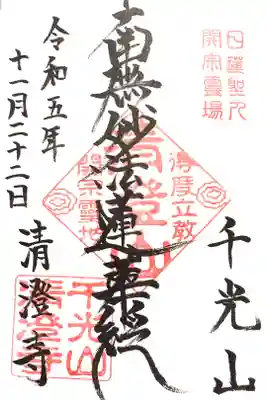 日蓮聖人
開宗霊場
千光山
南無妙法蓮華経
清澄山
得度立教
開宗霊地
清澄寺
千光山
清澄寺
令和五年
十一月二十二日